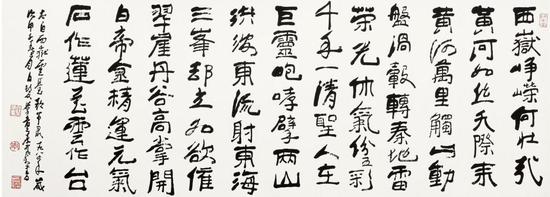 西嶽崢嶸何壯哉
黃河如絲天際來
黃河萬里觸山動
盤渦轂轉秦地雷
榮光休氣紛五彩
千年一清聖人在
巨靈咆哮擘兩山
洪波東流射東海
三峯却立如欲摧
翠崖丹谷高掌開
白帝金精運元氣
石作蓮花雲作台
西嶽雲臺歌